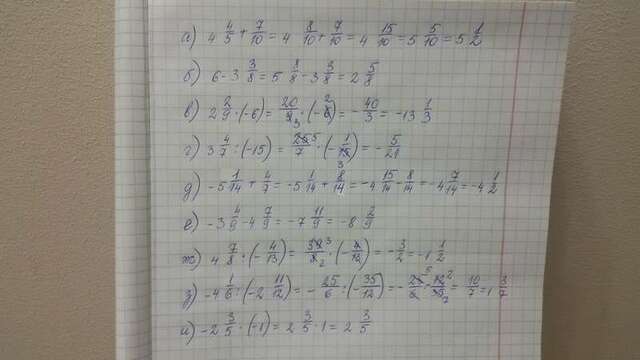 а) 4 4/5 + 7/10 = 4 8/10 + 7/10 = 4 15/10 = 5 5/10 = 5 1/2
б) 6 - 3 3/8 = 5 8/8 - 3 3/8 = 2 5/8
в) 2 2/9 · (-6) = 20/9 3 · (- 6 2) = - 40/3 = -13 1/3
г) 3 4/7 : (-15) = 25 5/7 · (- 1/15 3) = - 5/21
д) -5 1/14 + 4/7 = -5 1/14 + 8/14 = -4 15/14 - 8/14 = -4 7/14 = -4 1/2
е) -3 4/9 - 4 7/9 = -7 11/9 = -8 2/9
ж) 4 7/8 · (- 4/13) = 39 3/8 2 · (- 4/13) = - 3/2 = -1 1/2
з) -4 1/6 : (-2 11/12) = - 25/6 : (- 35/12) = - 25 5/6 · 12 2/35 7 = 10/7 = 1 3/7
и) -2 3/5 · (-1) = 2 3/5 · 1 = 2 3/5